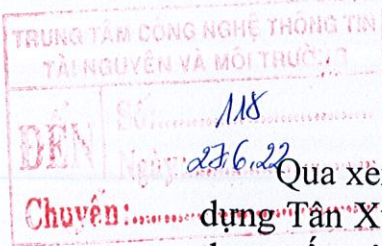 TRUNG TÂM CÔNG NGHỆ THÔNG TIN
TÀI NGUYÊN VÀ MÔI TRƯỜNG
ĐẾN
Số: 118
Ngày: 27.6.22
Qua xe
Chuyển:
dựng Tân X